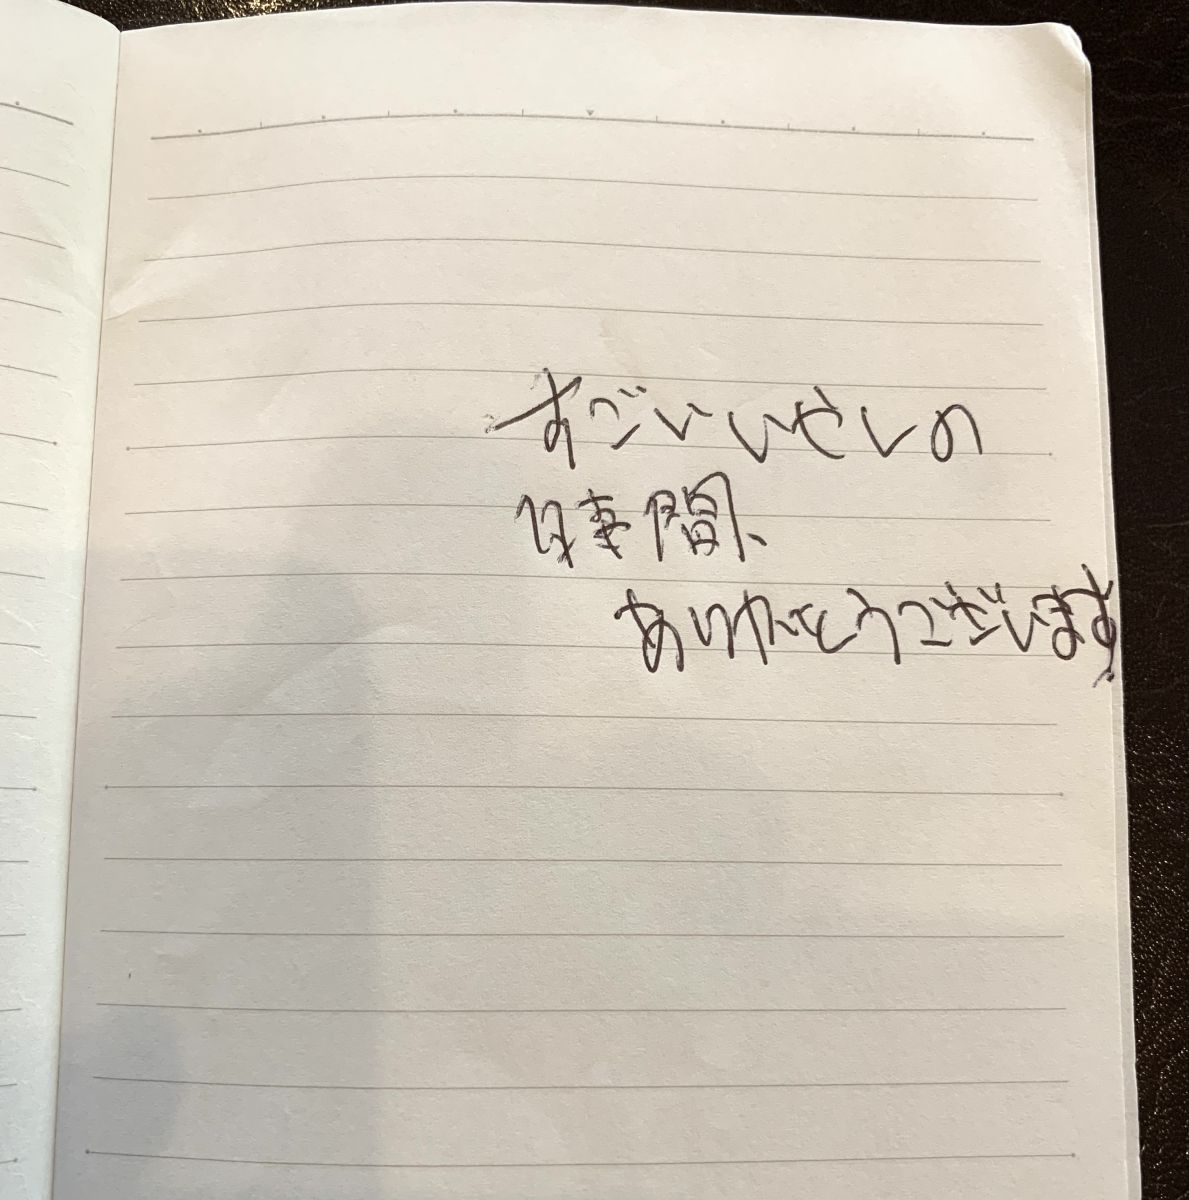 すごいいやしの
時間、
ありがとうございます